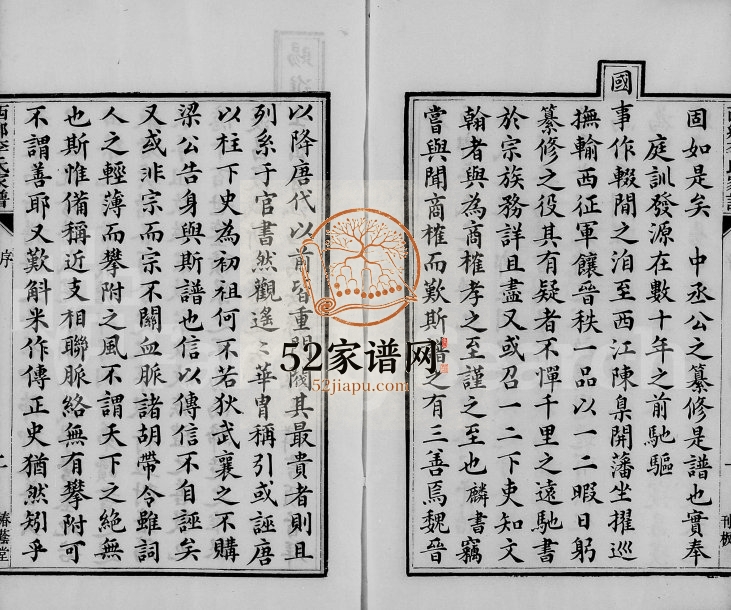 固如是矣　中丞公之纂修是譜也實奉
庭訓發源在數十年之前馳驅
國事作輟間之洎至西江陳臬開藩坐擢巡
撫輸西征軍饟晉秩一品以一二暇日躬
纂修之役其有疑者不憚千里之遠馳書
於宗族務詳且盡又或召一二下吏知文
翰者與為商榷孝之至謹之至也麟書竊
嘗與聞商榷而歎斯譜之有三善焉魏晉
刊板
以降唐代以前皆重門閥其最貴者則且
列系于官書然觀遙遙華胄稱引或誣唐
以柱下史為初祖何不若狄武襄之不購
梁公告身與斯譜也信以傳信不自誣矣
又或非宗而宗不關血脈諸胡帶令雖詞
人之輕薄而攀附之風不謂天下之絕無
也斯惟備稱近支相聯脈絡無有攀附可
不謂善耶又歎斛米作傳正史猶然矧乎
序
椿蔭堂
52家谱网
52jiapu.com